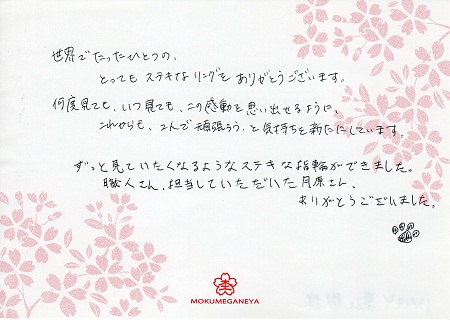 世界でたったひとつの、
とってもステキなリングをありがとうございます。
何度見ても、いつ見ても、この感動を思い出せるように、
これからも、2人で頑張ろう、と気持ちを新たにしています。
ずっと見ていたくなるようなステキな指輪ができました。
職人さん、担当していただいた月原さん、
ありがとうございました。
MOKUMEGANEYA